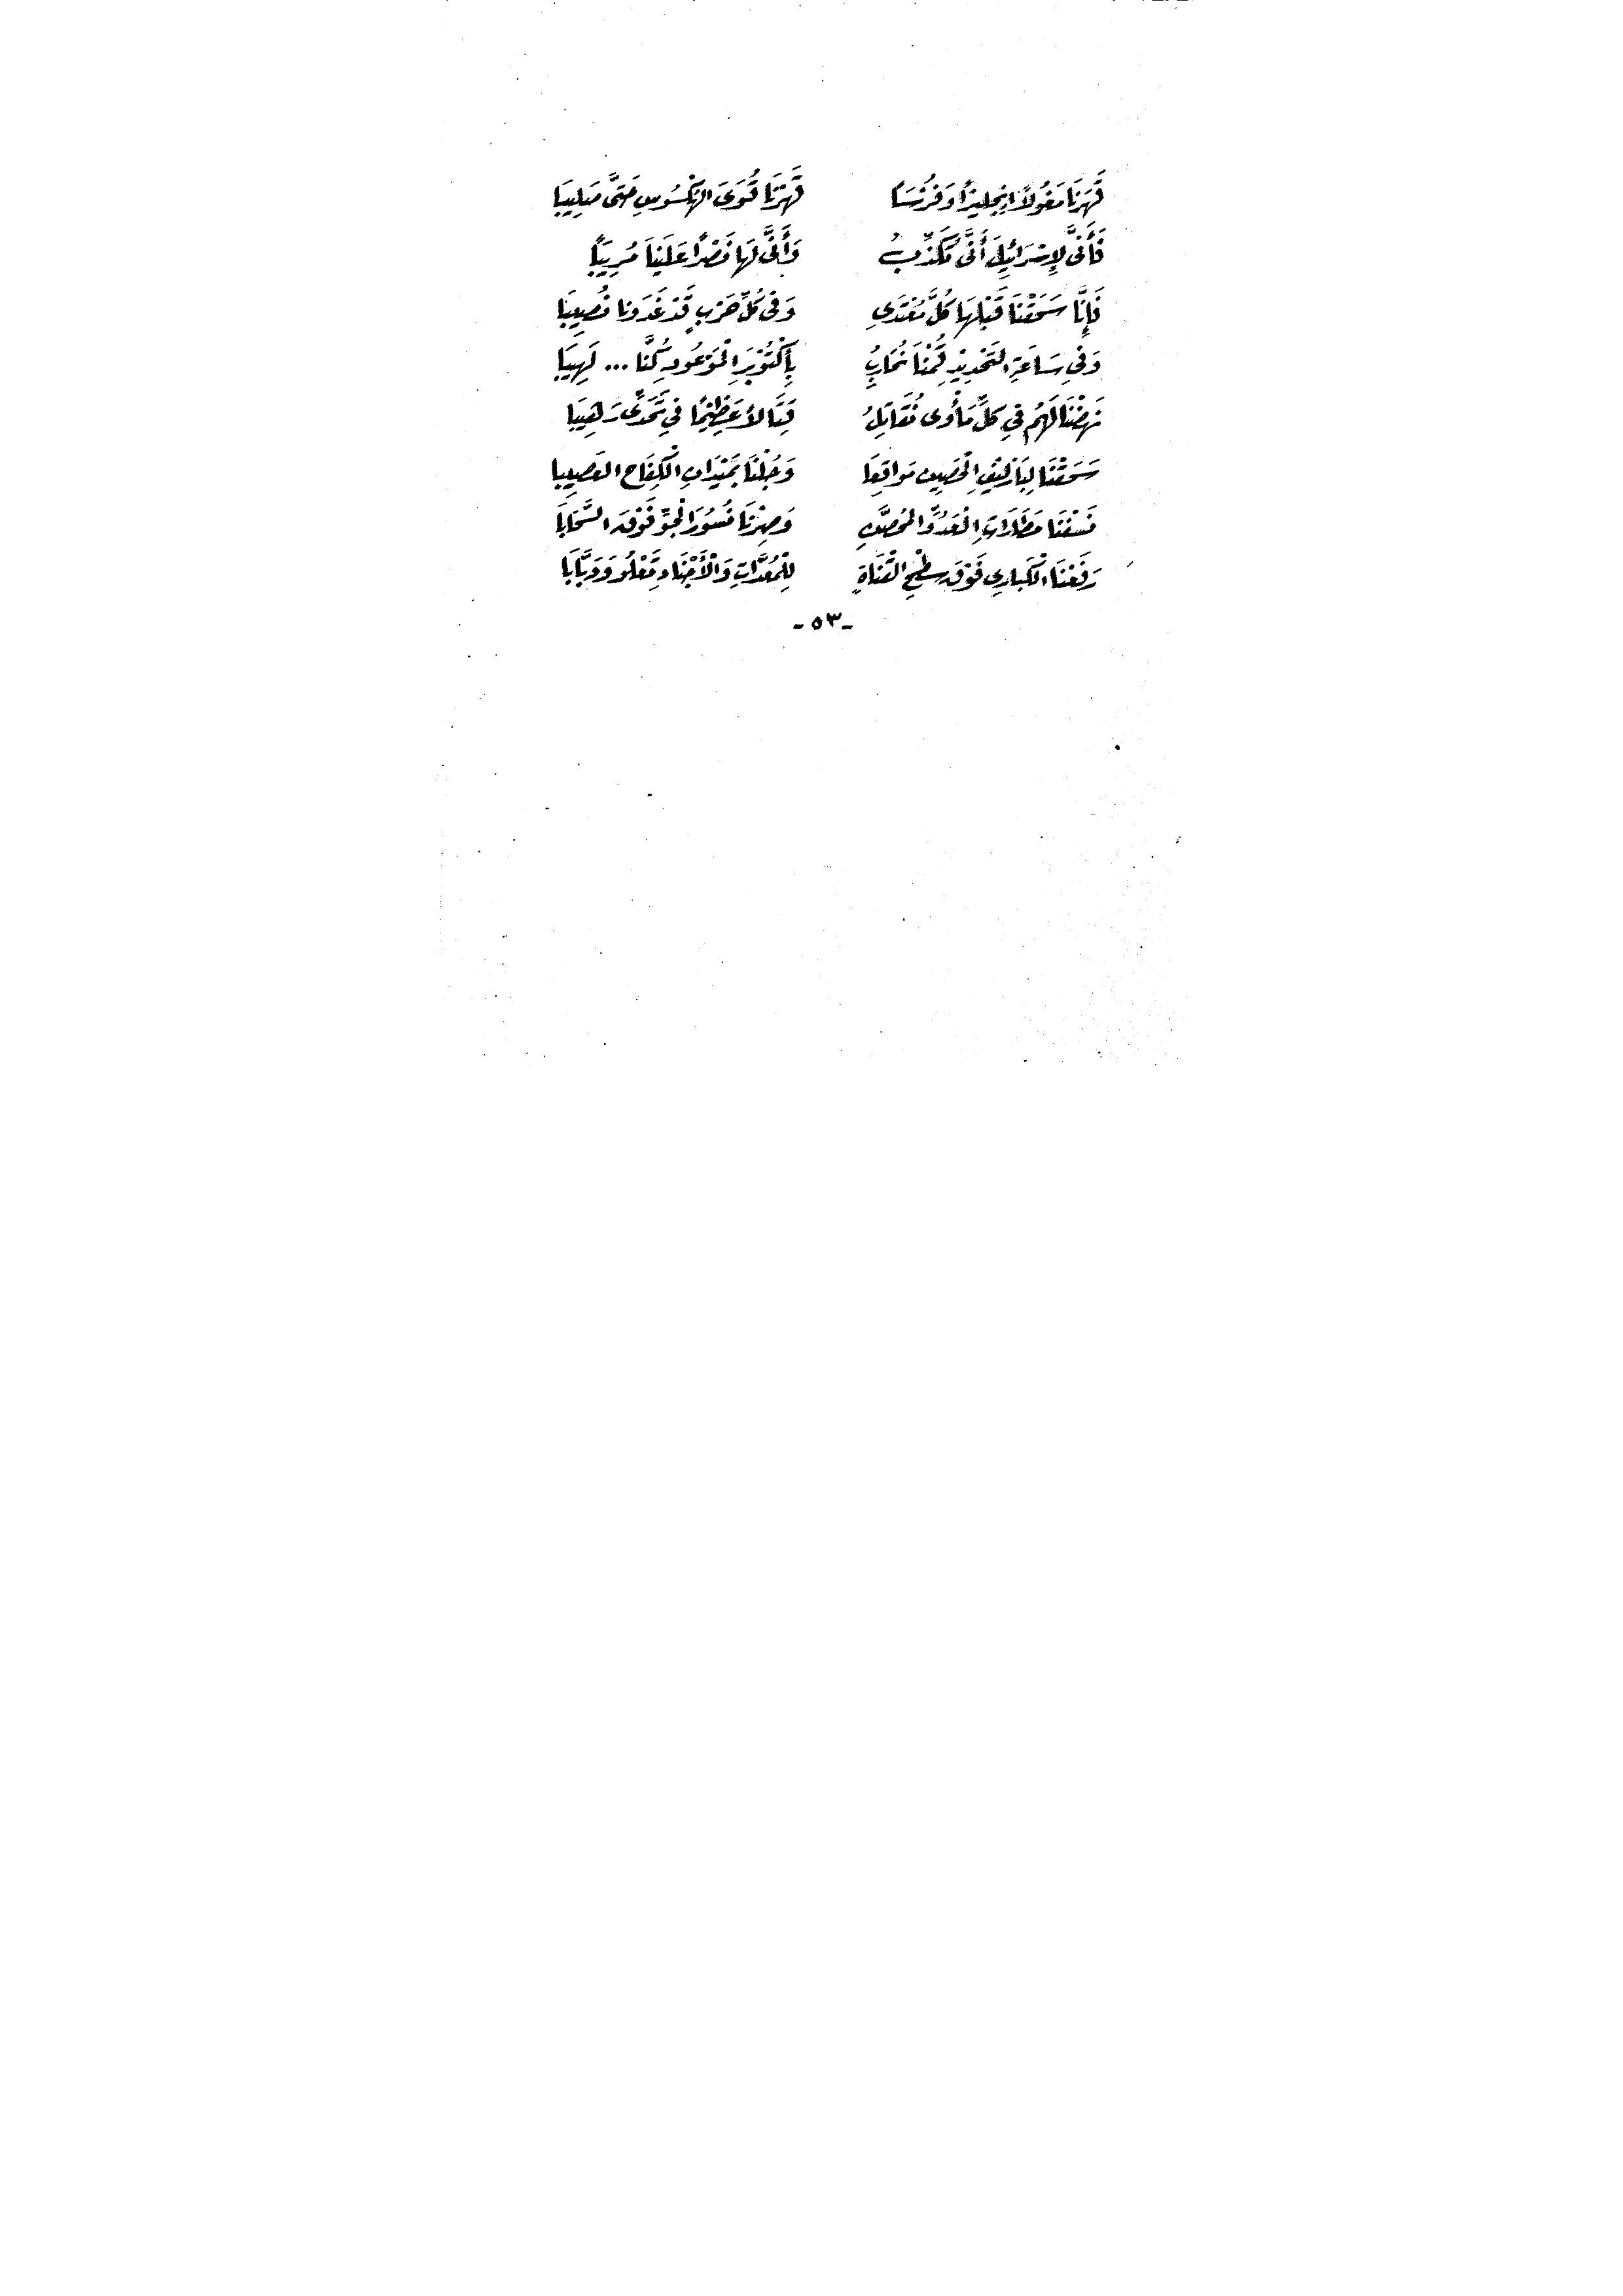 قَهَرْنَا مَغُولاً إِنجِليزاً وَفُرْنسَا قَهَرْنَا قُوَى الهِكْسُوسِ حَتَّى صَلِيبَا
فَأَنَّى لإِسْرَائِيلَ أَنَّى تُكَذِّبُ وَأَنَّى لَهَا نَصْراً عَلَيْنَا مُرِيبَاً
فَإِنَّا سَحَقْنَا قَبْلَهَا كُلَّ مُعْتَدِي وَفى كُلِّ حَرْبٍ قَدْ غَدَوْنا نُصِيبَا
وَفي سَاعَةِ التَحْدِيدْ قُمْنَا نُحَارِبُ بِأُكْتُوْبَرَ الْمَوْعُودِ كُنَّا ... لَهِيبَا
نَهَضْنَا لَهُمْ في كلِّ مَأْوى نُقَاتِلُ قِتَالاً عَظِيْمًا في تَحَدًّى رَهِيبَا
سَحَقْنَا لِبَارْلِيْفِ الْحَصِينِ مَواقِعَا وَجُلْنَا بِمَيْدَانِ الْكِفَاحِ العَصِيبا
نَسَفْنَا مَطَارَاتِ الْعَدُوِّ المُحَصَّنِ وَصِرْنَا نُسُورَ الْجَوِّ فَوْقَ السَّحَابَا
رَفَعْنَا الْكَبَارِي فَوْقَ سطْحِ القَنَاةِ لِلْمُعِدَّاتِ وَالْأَجْنَادِ تَعْلُو وَدَبَّابَا
- ٥٣ -